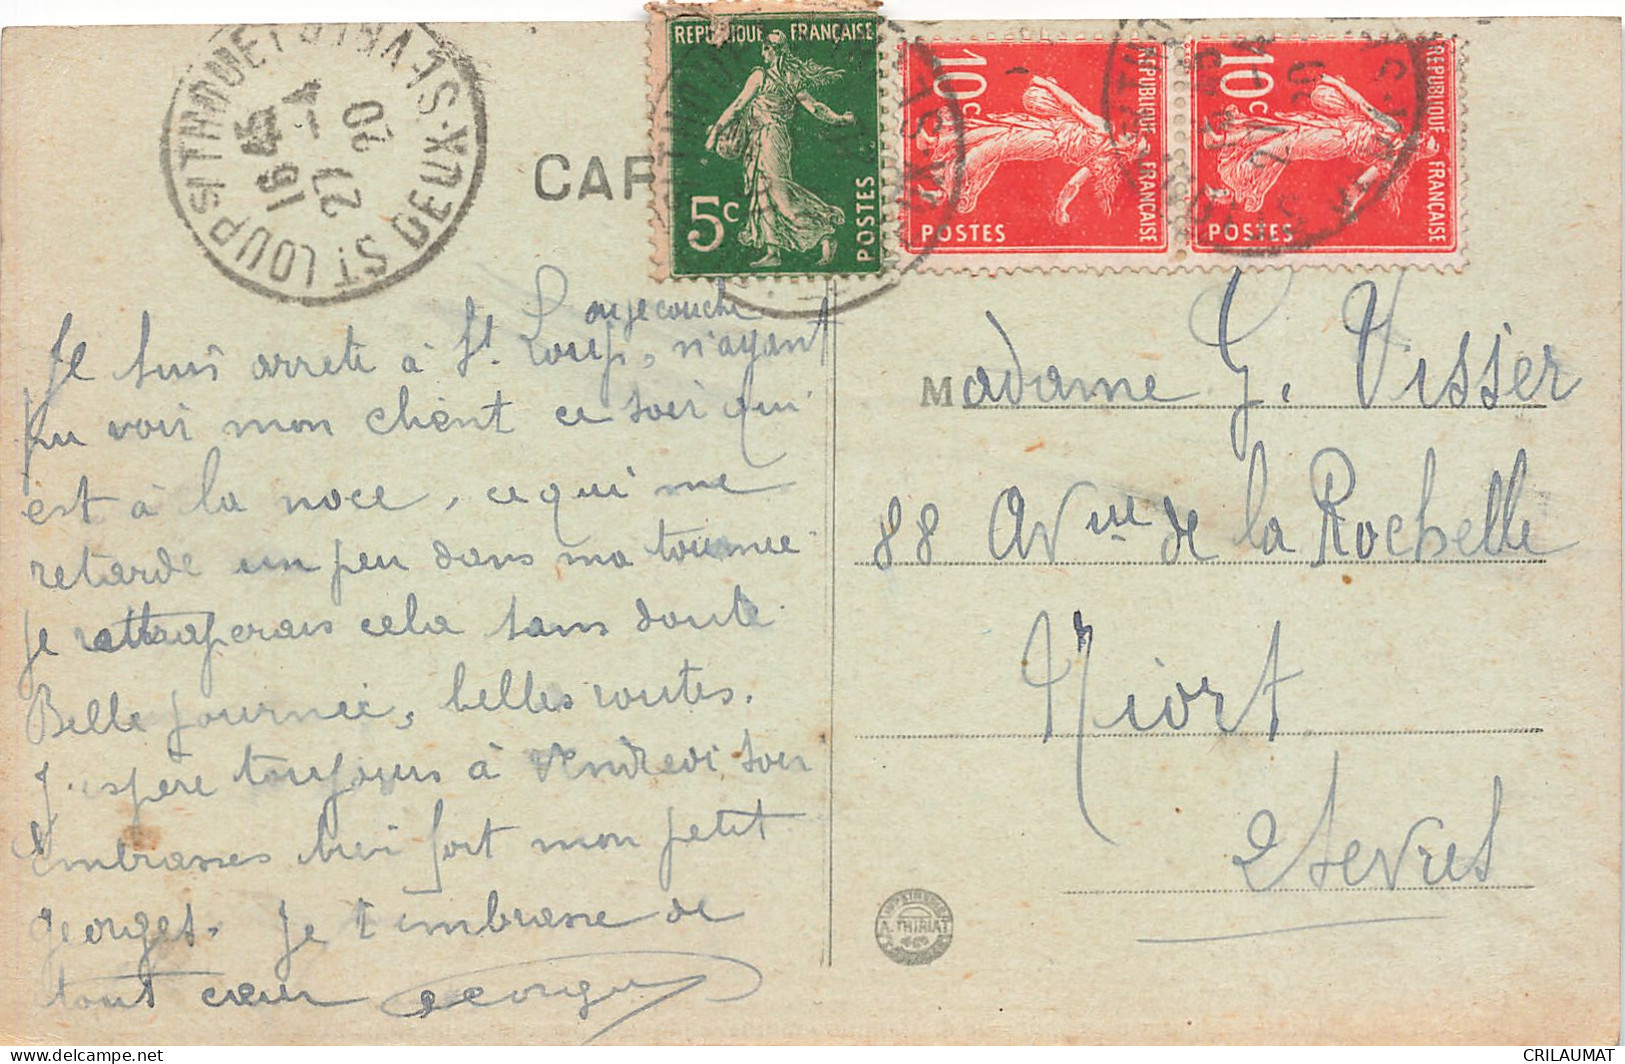 ST LOUP S/ THOUET
DEUX-SEVRES
16 45
27 - 4
20
CAR
REPUBLIQUE FRANÇAISE
5c
POSTES
REPUBLIQUE FRANÇAISE
10c
POSTES
REPUBLIQUE FRANÇAISE
10c
POSTES
ou je couche
Je suis arrete à St Loup, n'ayant
pu voir mon client ce soir qui
est à la noce, ce qui me
retarde un peu dans ma tournee
je rattraperais cela sans doute.
Belle journée, belles routes.
J'espère toujours à vendredi soir
Embrasses bien fort mon petit
georges. Je t'embrasse de
tout cœur Georges
Madame G. Visser
88 Avnue de la Rochelle
Niort
2 Sevres
A. THIRIAT
CRILAUMAT